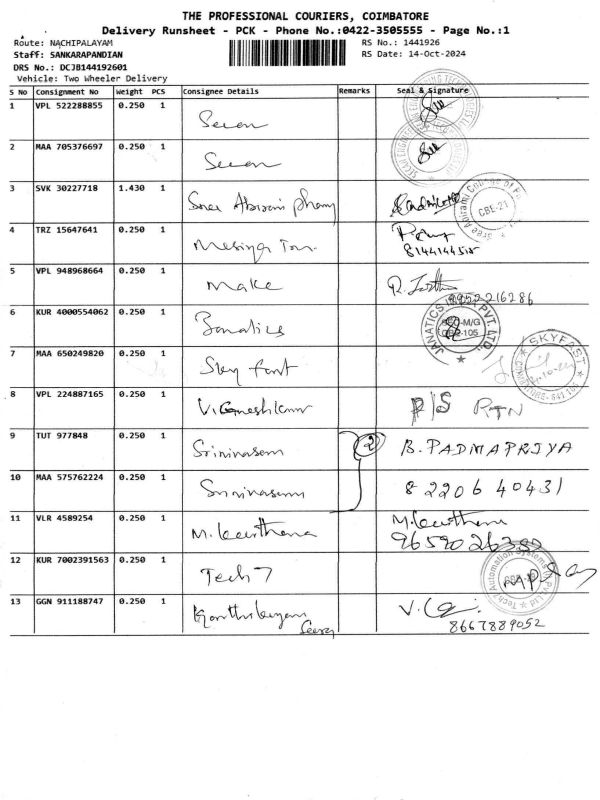 THE PROFESSIONAL COURIERS, COIMBATORE
Delivery Runsheet - PCK - Phone No.:0422-3505555 - Page No.:1
Route: NACHIPALAYAM
RS No.: 1441926
Staff: SANKARAPANDIAN
RS Date: 14-Oct-2024
DRS No.: DCJB144192601
Vehicle: Two Wheeler Delivery
S No Consignment No Weight PCS Consignee Details Remarks Seal & Signature
1 VPL 522288855 0.250 1
2 MAA 705376697 0.250 1
3 SVK 30227718 1.430 1 Sree Abirami
CBE-21
4 TRZ 15647641 0.250 1
5 VPL 948968664 0.250 1 Make
8952216286
6 KUR 4000554062 0.250 1 Janatics
JANATICS PVT. LTD.
7 MAA 650249820 0.250 1 Sky
SKYFAST
8 VPL 224887165 0.250 1 V. Ganeshkumar P/S RTN
9 TUT 977848 0.250 1 Srinivasan 2 B. PADMAPRIYA
10 MAA 575762224 0.250 1 Srinivasan 8 2206 40431
11 VLR 4589254 0.250 1 M. Keerthana M. Keerthana
12 KUR 7002391563 0.250 1 Tech 7
Tech 7 Automation Systems Pvt Ltd
13 GGN 911188747 0.250 1
8667889052